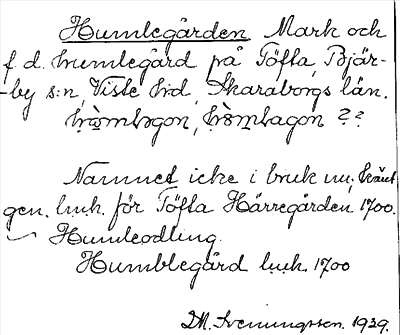 Humlegården Mark och
f d. humlegård på Töfta, Bjär-
by s:n, Viste hd, Skaraborgs län.
??
Namnet icke i bruk nu,
gen. för Töfta Härregården, 1700.
Humleodling.
Humblegård 1700
Sveningsson. 1939.